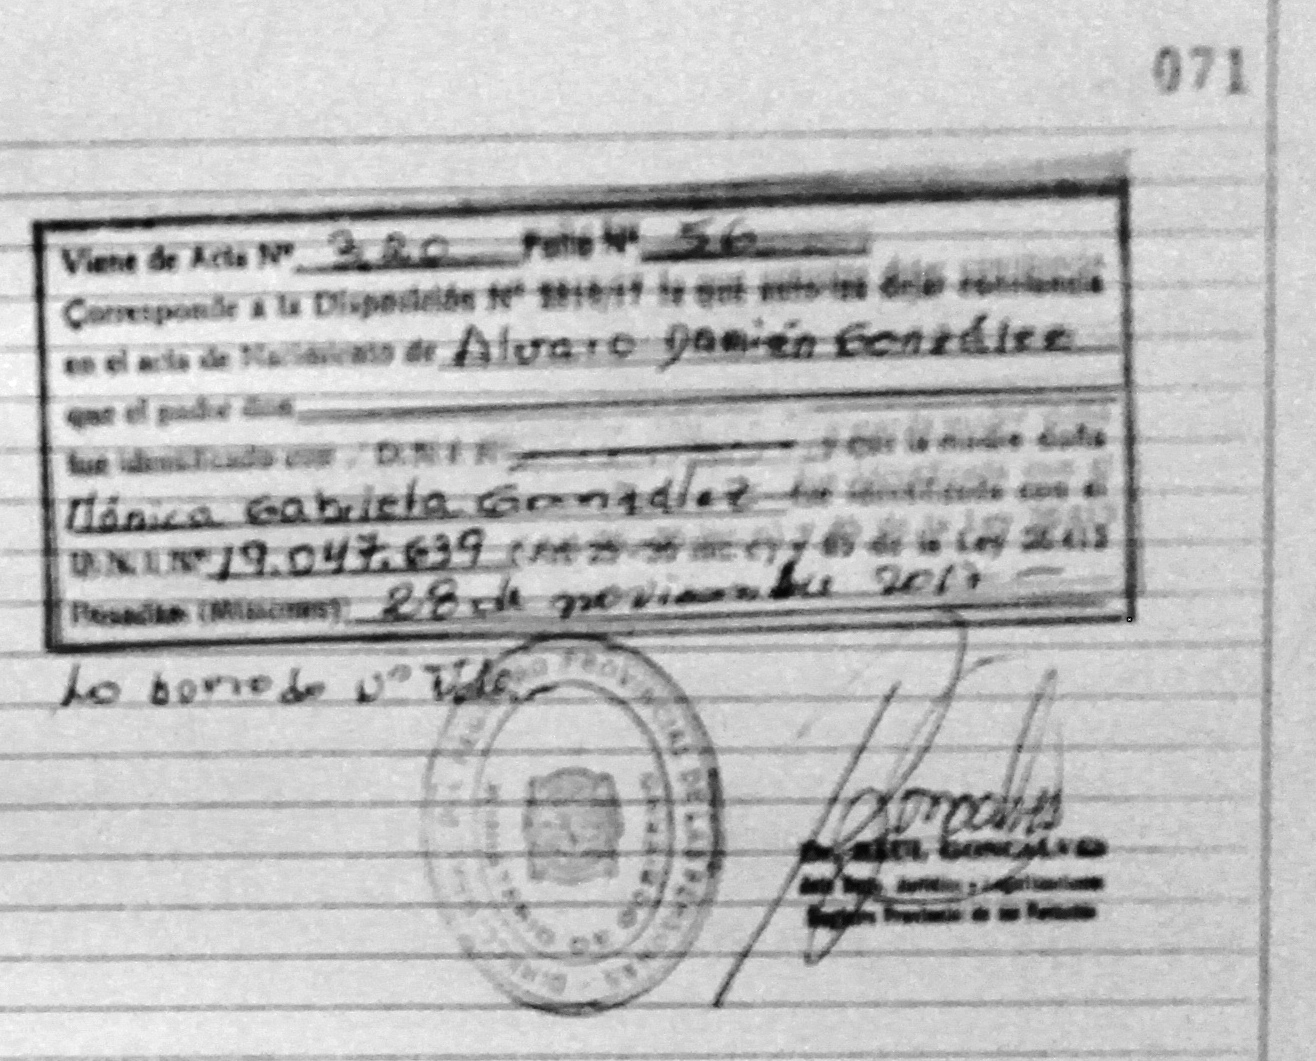 071
Viene de Acta Nº 320 Folio Nº 56
Corresponde a la Disposición Nº la que autoriza dejar constancia
en el acta de Nacimiento de Alvaro Damián González
que el padre don
fue identificado con D.N.I. Nº y que la madre doña
Mónica Gabriela González fue identificada con el
D.N.I. Nº 19.047.639 y de la Ley 26413
Posadas (Misiones) 28 de noviembre 2017
Lo borrado Nº Vale.
REGISTRO PROVINCIAL DE LAS PERSONAS
Gonçalves
Dr. RAUL GONCALVES
Jurídico y Legalizaciones
Registro Provincial de las Personas